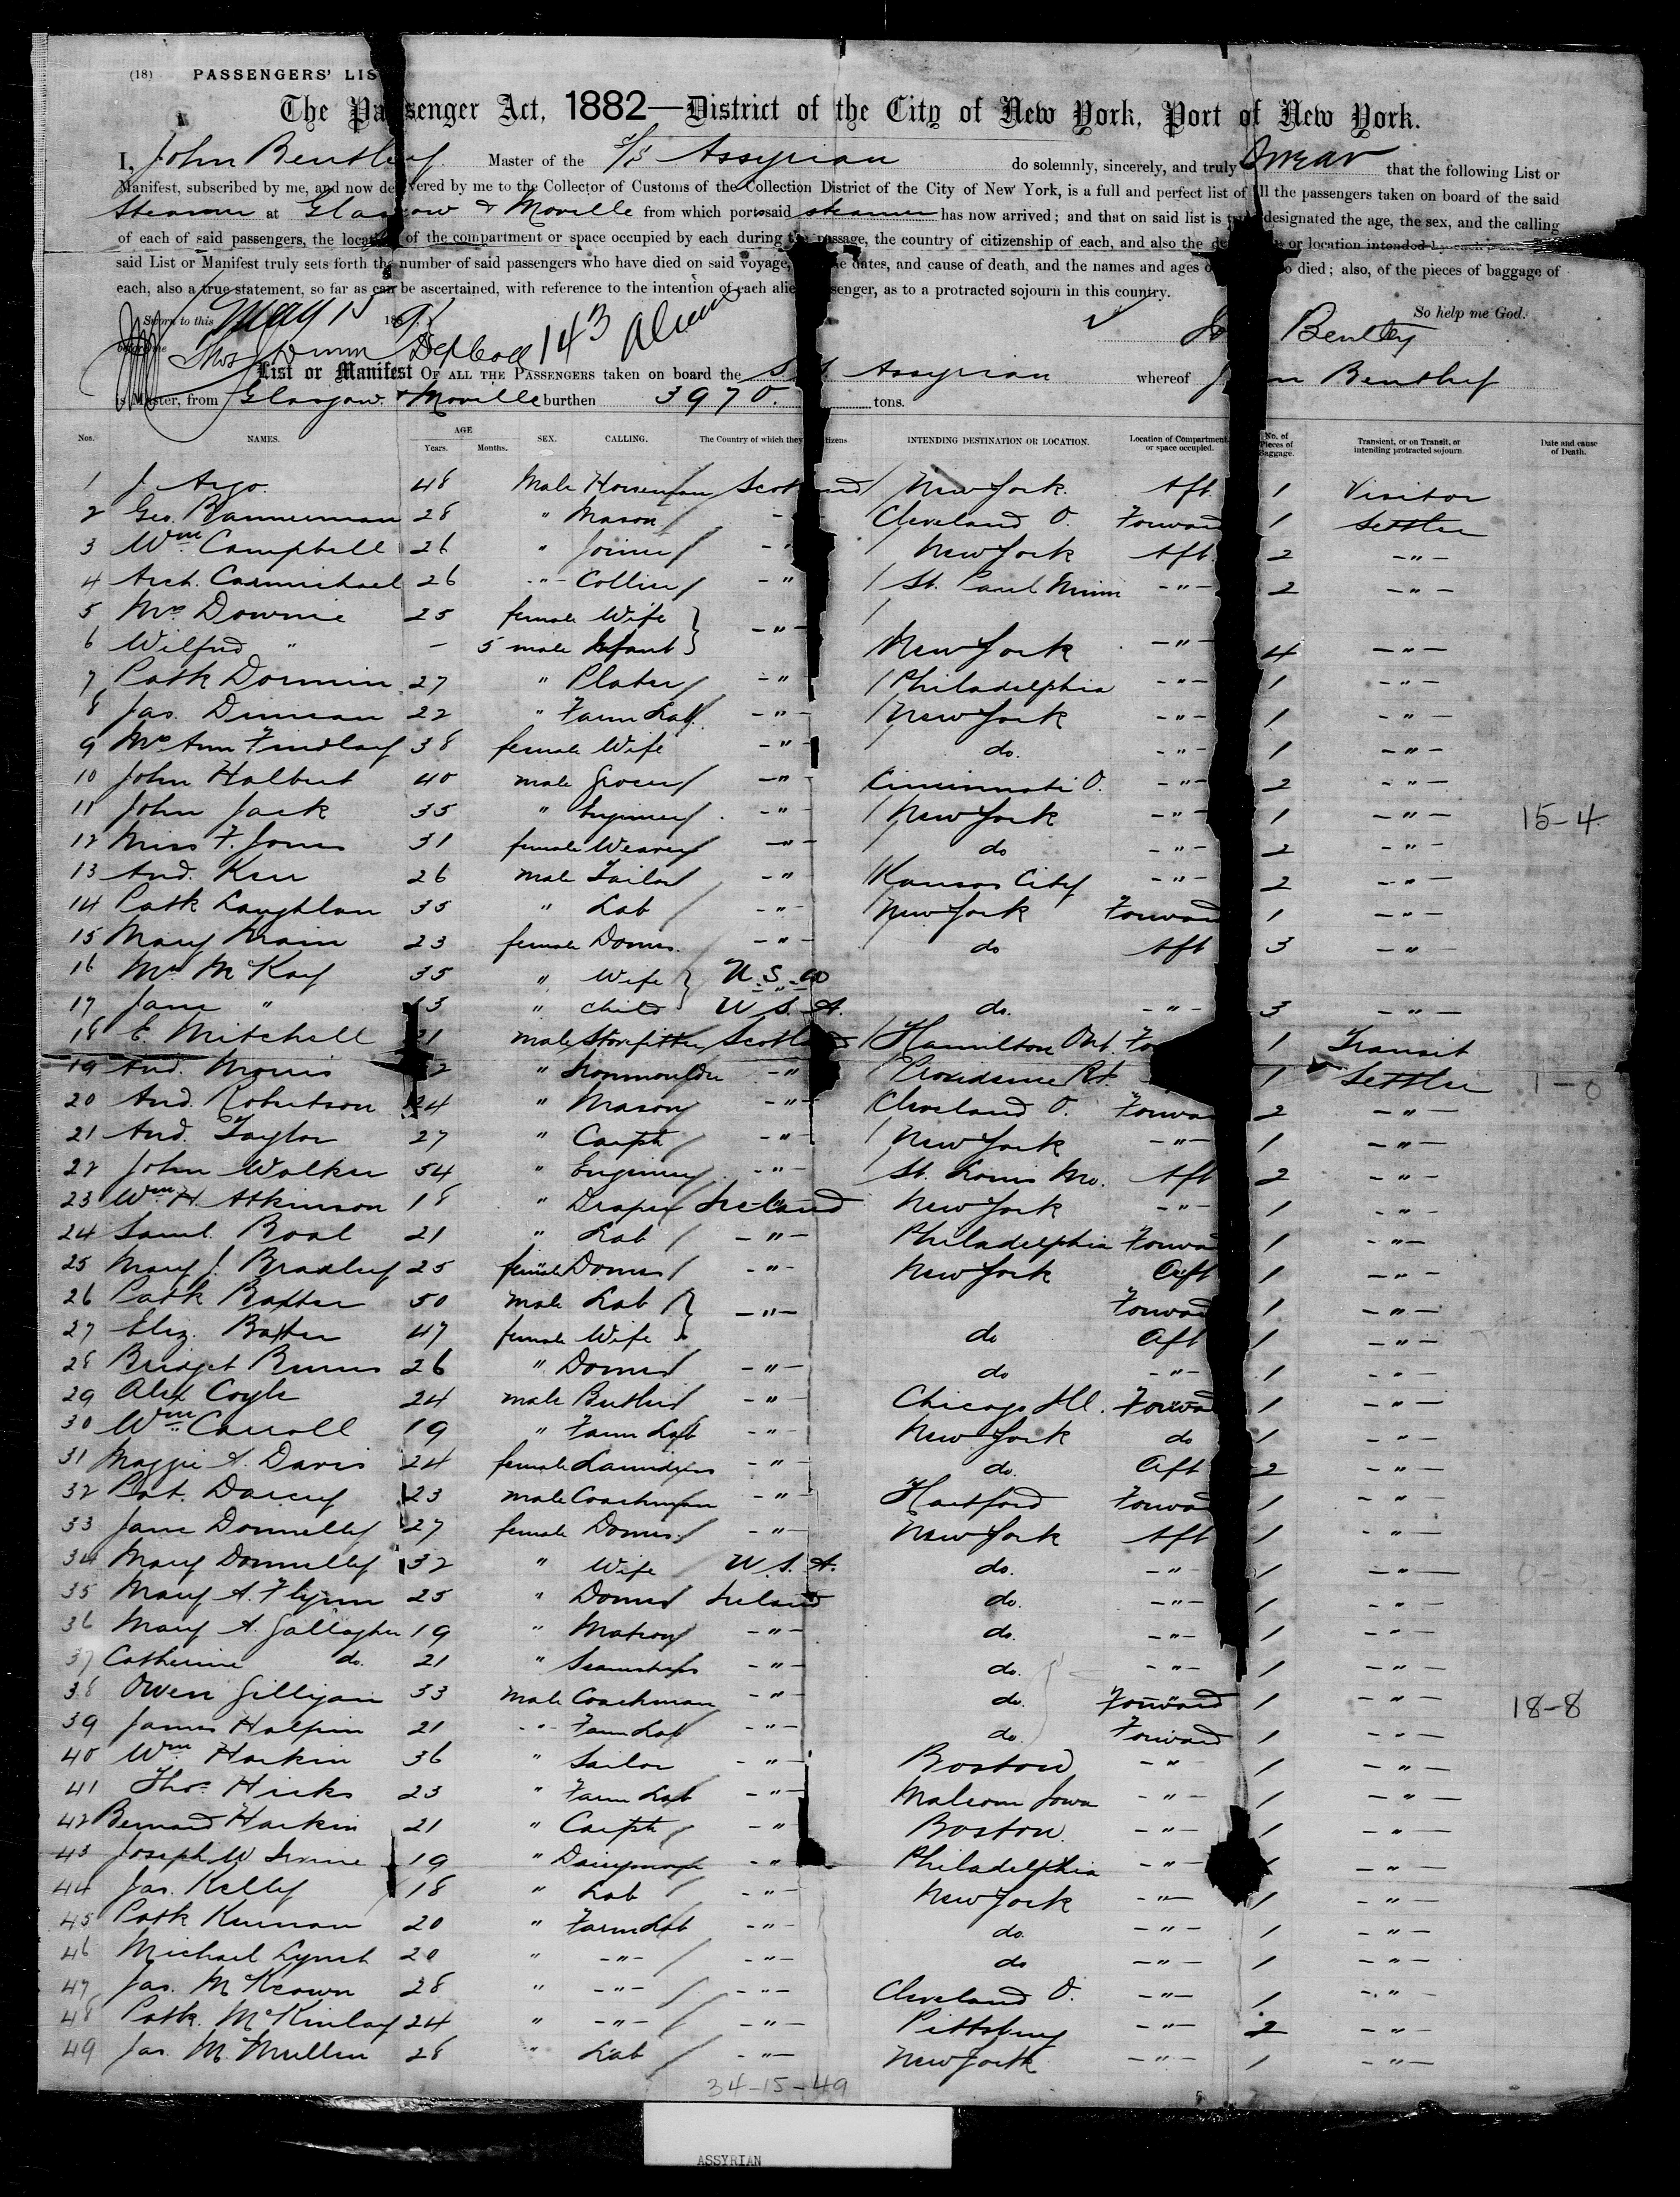 (18) PASSENGERS' LIS
The Passenger Act, 1882—District of the City of New York, Port of New York.
I, John Bentley Master of the S/S Assyrian do solemnly, sincerely, and truly Swear that the following List or
Manifest, subscribed by me, and now delivered by me to the Collector of Customs of the Collection District of the City of New York, is a full and perfect list of all the passengers taken on board of the said
Steamer at Glasgow & Moville from which port said steamer has now arrived; and that on said list is truly designated the age, the sex, and the calling
of each of said passengers, the location of the compartment or space occupied by each during the passage, the country of citizenship of each, and also the or location intended by each
said List or Manifest truly sets forth the number of said passengers who have died on said voyage, the dates, and cause of death, and the names and ages died; also, of the pieces of baggage of
each, also a true statement, so far as can be ascertained, with reference to the intention of each alien passenger, as to a protracted sojourn in this country.
So help me God.
Sworn to this May 15 189
before me Thos Dunn Dep Coll 143 Aliens Jo Bentley
List or Manifest OF ALL THE PASSENGERS taken on board the S.S. Assyrian whereof John Bentley
is Master, from Glasgow & Moville burthen 3970. tons.
Nos. NAMES. AGE Years. Months. SEX. CALLING. The Country of which they citizens INTENDING DESTINATION OR LOCATION. Location of Compartment or space occupied. No. of Pieces of Baggage. Transient, or on Transit, or intending protracted sojourn. Date and cause of Death.
1 J. Argo 48 Male Horseman Scotland New York Aft 1 Visitor
2 Geo. Bannerman 28 " Mason - Cleveland O. Forward 1 Settler
3 Wm Campbell 26 " Joiner - " New York Aft 2 - " -
4 Arch. Carmichael 26 - " - Collier - " St. Paul Minn - " - 2 - " -
5 Mrs Downie 25 female Wife
6 Wilfred " - 5 male Infant - " - New York - " - 4 - " -
7 Patk Dornin 27 " Plater - " - Philadelphia - " - 1 - " -
8 Jas. Duncan 22 " Farm Lab. - " - New York - " - 1 - " -
9 Mrs Ann Findlay 38 female Wife - " - do. - " - 1 - " -
10 John Halbert 40 male Grocer - " - Cincinnati O. - " - 2 - " -
11 John Jack 35 " Engineer - " - New York - " - 1 - " - 15-4
12 Miss F. Jones 31 female Weaver - " - do - " - 2 - " -
13 And. Kerr 26 male Tailor - " Kansas City - " - 2 - " -
14 Patk Laughlan 35 " Lab - " - New York Forward 1 - " -
15 Mary Main 23 female Domes. - " - do Aft 3 - " -
16 Mrs McKay 35 " Wife U.S.
17 Jane " 13 " child U.S.A. do. - " - 3 - " -
18 E. Mitchell 21 male Storefitter Scotland Hamilton Ont. Fo 1 Transit
19 And. Morris 2 " Ironmoulder - " Providence R.I. 1 Settler 1-0
20 And. Robertson 24 " Mason - " - Cleveland O. Forwar 2 - " -
21 And. Taylor 27 " Carptr - " - New York - " - 1 - " -
22 John Walker 54 " Engineer - " - St. Louis Mo. Aft 2 - " -
23 Wm H. Atkinson 18 " Draper Ireland New York - " - 1 - " -
24 Saml. Boal 21 " Lab - " - Philadelphia Forwar 1 - " -
25 Mary J. Bradley 25 female Domes - " - New York Aft 1 - " -
26 Patk Baxter 50 male Lab - " - Forward 1 - " -
27 Eliz. Baxter 47 female Wife do Aft 1 - " -
28 Bridget Burns 26 " Domes - " - do - " - 1 - " -
29 Alex Coyle 24 male Butler - " - Chicago Ill. Forwar 1 - " -
30 Wm Carroll 19 " Farm Lab - " - New York do 1 - " -
31 Maggie A. Davis 24 female Laundress - " - do. Aft 2 - " -
32 Pat. Darcy 23 male Coachman - " - Hartford Forward 1 - " -
33 Jane Donnelly 27 female Domes. - " - New York Aft 1 - " -
34 Mary Donnelly 32 " Wife U.S.A. do. - " - 1 - " -
35 Mary A. Flynn 25 " Domes Ireland do. - " - 1 - " -
36 Mary A. Gallagher 19 " Matron - " - do. - " - 1 - " -
37 Catherine do. 21 " Seamstress - " - do. - " - 1 - " -
38 Owen Gilligan 33 male Coachman - " - do. Forward 1 - " - 18-8
39 James Halpin 21 - " - Farm Lab - " - do. Forward 1 - " -
40 Wm Harkin 36 " Sailor - " - Boston - " - 1 - " -
41 Thos Hicks 23 " Farm Lab - " - Malcom Iowa - " - 1 - " -
42 Bernard Harkin 21 " Carptr - " Boston - " - 1 - " -
43 Joseph W Irvine 19 " Dairyman - " Philadelphia - " - 1 - " -
44 Jas. Kelly 18 " Lab - " - New York - " - 1 - " -
45 Patk Kernan 20 " Farm Lab - " - do. - " - 1 - " -
46 Michael Lynch 20 " - " - - " - do - " - 1 - " -
47 Jas. McKeown 28 " - " - - " - Cleveland O. - " - 1 - " -
48 Patk. McKinlay 24 " - " - - " - Pittsburg - " - 2 - " -
49 Jas. McMullen 28 " Lab - " - New York - " - 1 - " -
34-15-49
ASSYRIAN